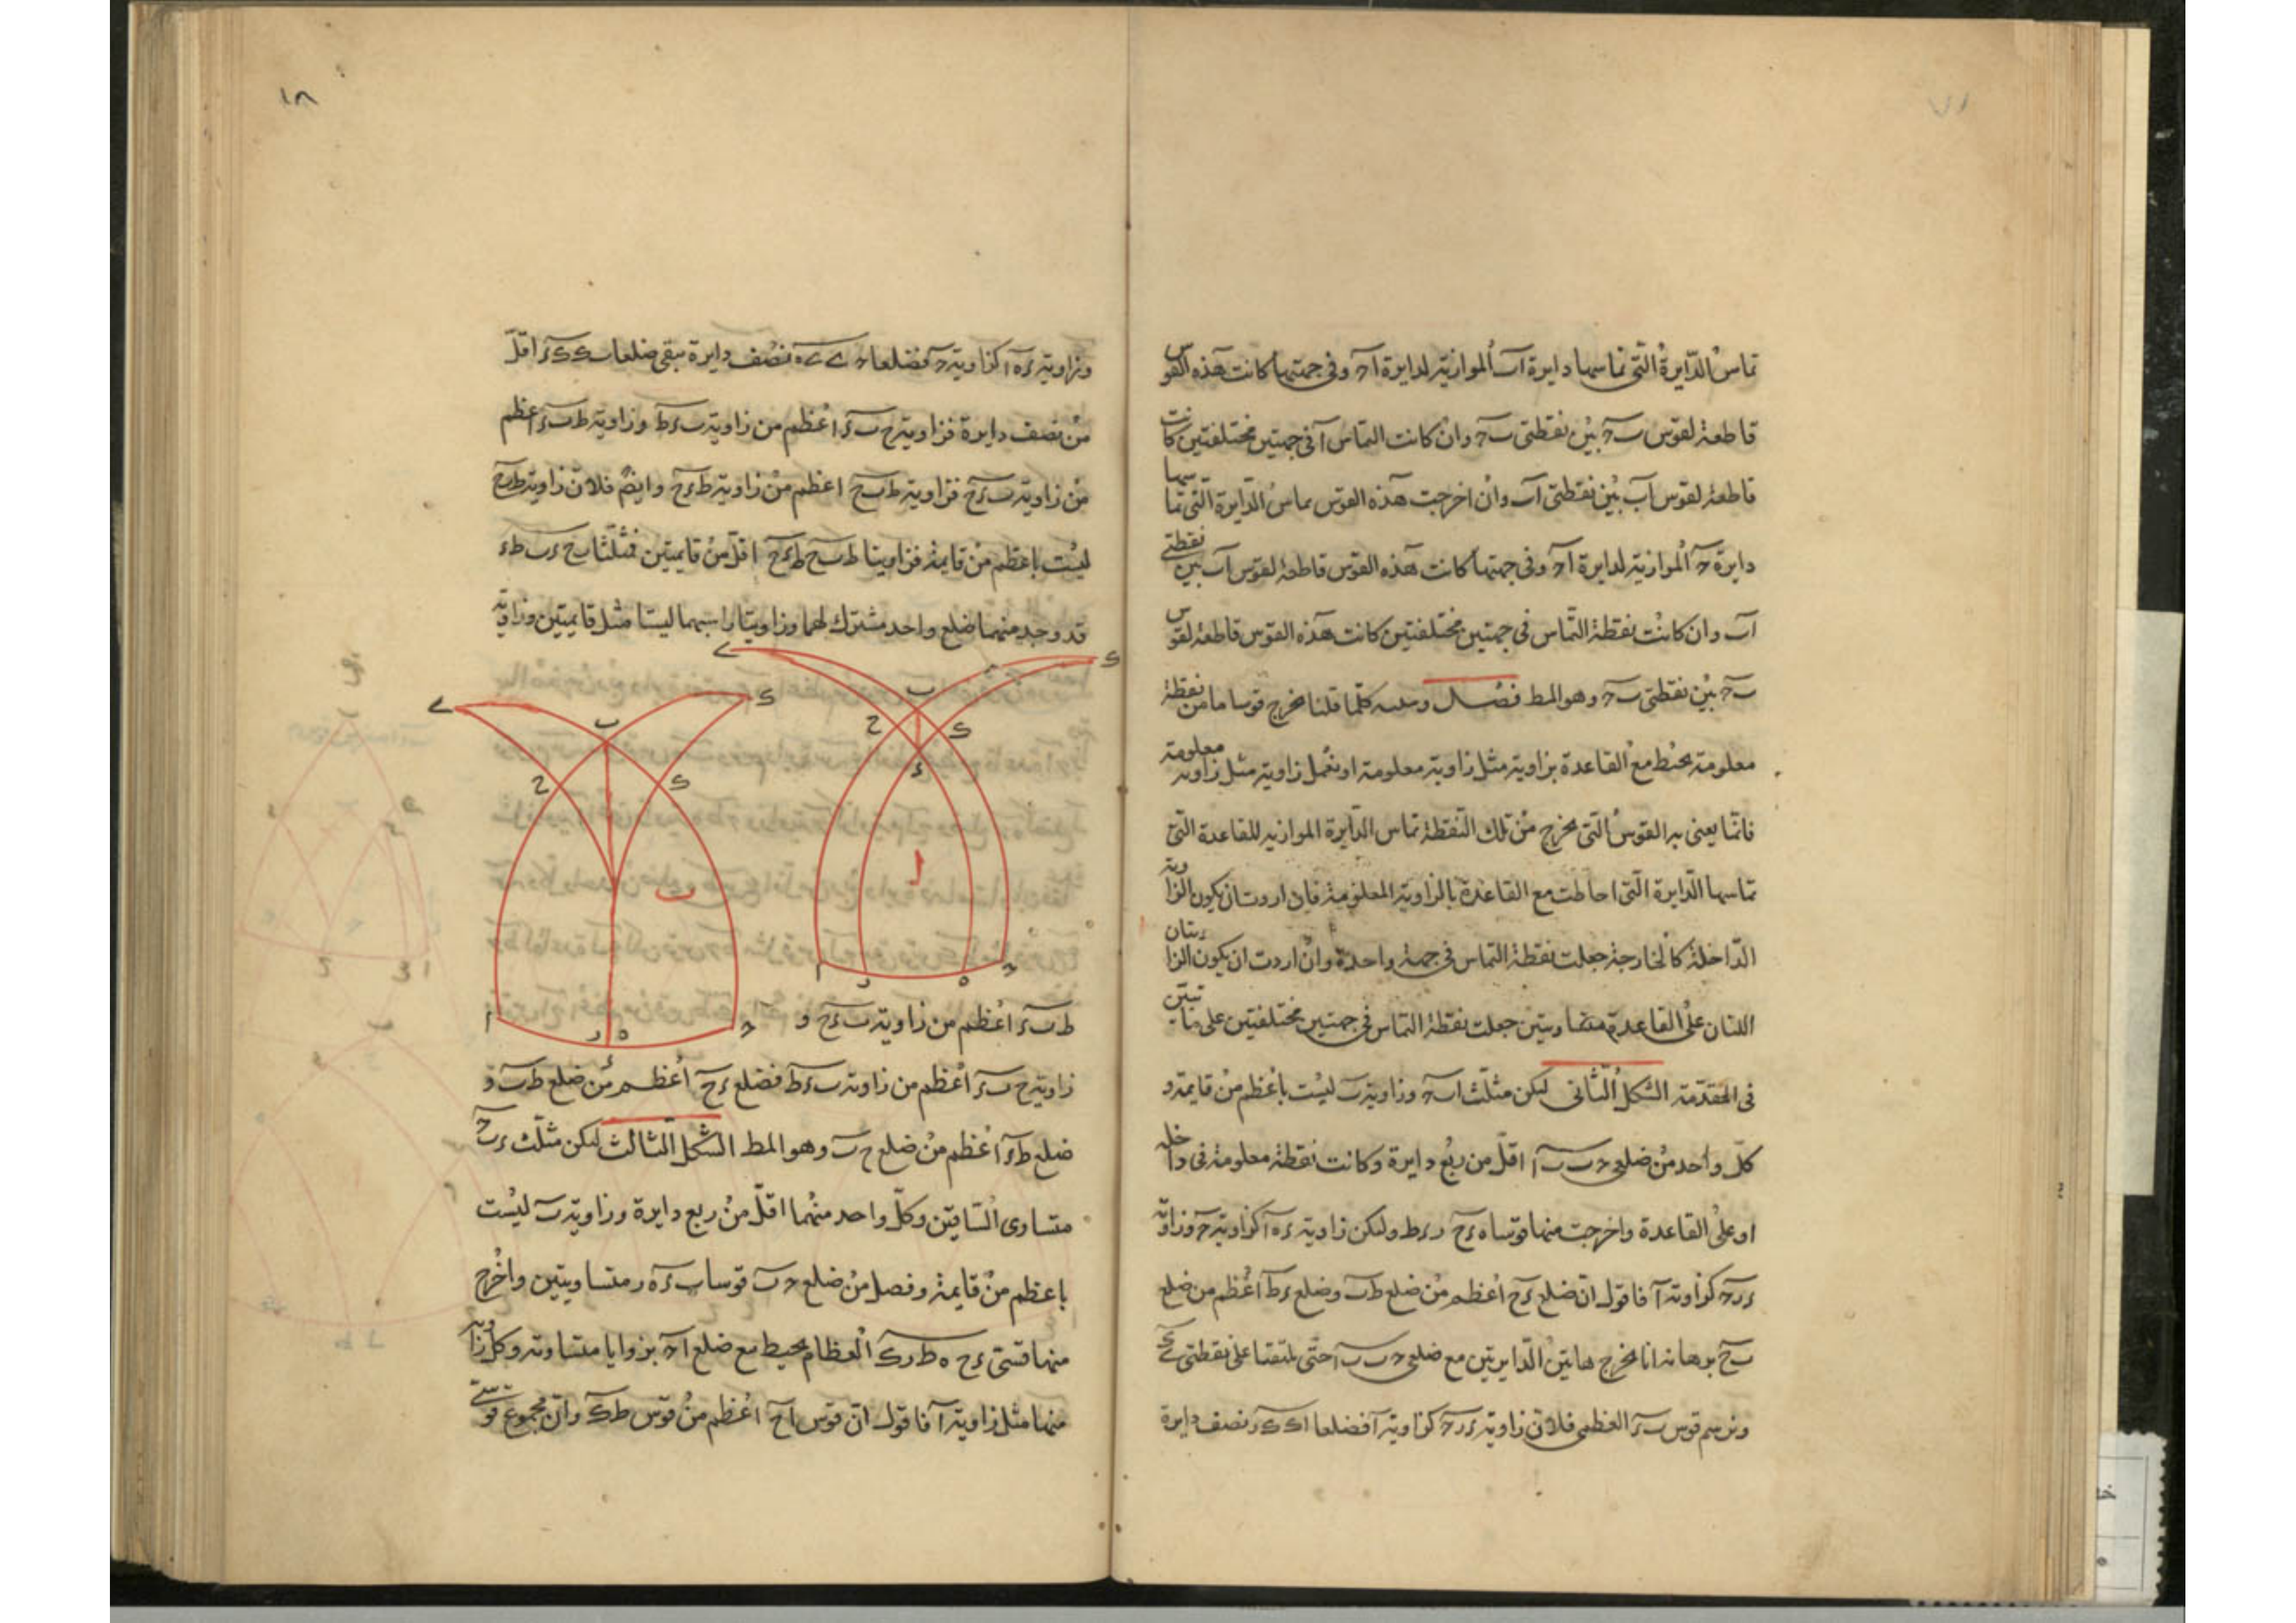 تماسّ الدّايرة التى تماسها دايرة اب الموازية لدايرة اح وفى جهتها كانت هذه القوس
قاطعة لقوس ب ح بين نقطتى ب ح وان كانت التماس آ فى جهتين مختلفتين كانت
قاطعة لقوس اب بين نقطتى اب وان اخرجت هذه القوس يماس الدّايرة التى تماسها
دايرة ح الموازية لدايرة اح وفى جهتها كانت هذه القوس قاطعة لقوس اب بين نقطتى
اب وان كانت نقطة التماس فى جهتين مختلفتين كانت هذه القوس قاطعة لقوس
ب ح بين نقطتى ب ح وهو المط فصل كلّما قلنا نخرج قوسا ما من نقطة
معلومة يحيط مع القاعدة بزاوية مثل زاوية معلومة او نعمل زاوية مثل زاوية معلومة
فانّما يعنى به القوس التى يخرج من تلك النقطة تماس الدّايرة الموازيه للقاعدة التى
تماسها الدّايرة التى احاطت مع القاعدة بالزاوية المعلومة فان اردت ان يكون الزاوية
الدّاخلة كالخارجة جعلت نقطة التماس فى جهة واحدة وان اردت ان يكون الزاويتان
اللتان على القاعدة متساويتين جعلت نقطة التماس فى جهتين مختلفتين على ما تبيّن
فى المقدّمة الشكل الثانى ليكن مثلّث اب ح وزاوية ب ليست باعظم من قايمة و
كلّ واحد من ضلعى ح ب ب ا اقلّ من ربع دايرة وكانت نقطة معلومة فى داخله
او على القاعدة واخرجت منها قوسا ه ء ح ر ء ط ولكن زاوية ء ه ا كزاوية ح وزاوية
ء ر ح كزاوية آ فاقول انّ ضلع ء ح اعظم من ضلع ط ب وضلع ء ط اعظم من ضلع
ب ح برهانه انا نخرج هاتين الدّايرتين مع ضلعى ح ب ب ا حتى يلتقيا على نقطتى ى ك
ونرسم قوس ب ء العظمى فلانّ زاوية ء ر ح كزاوية آ فضلعا ا ك ك ر نصف دايرة
١٨
وزاوية ء ه ا كزاوية ح فضلعا ح ى ى ه نصف دايرة يبقى ضلعا ب ك ك ء اقلّ
من نصف دايرة فزاوية ح ب ء اعظم من زاوية ب ء ط وزاوية ط ب ء اعظم
من زاوية ب ء ح فزاوية ط ب ح اعظم من زاوية ط ء ح وايضً فلانّ زاوية ط ب ح
ليست باعظم من قايمة فزاويتا ط ب ح ط ء ح اقلّ من قايمتين فمثلّثا ب ح ء ب ط ء
قد وجد منهما ضلع واحد مشترك لهما وزاويتا راسيهما ليستا مثل قايمتين وزاوية
ى ك ب ح ك ء ا ا ر ه ح
ى ك ب ح ك ب ا ر ه ح ء
ط ب ء اعظم من زاوية ب ء ح و
زاوية ح ب ء اعظم من زاوية ب ء ط فضلع ء ح اعظم من ضلع ط ب و
ضلع ط ء اعظم من ضلع ح ب وهو المط الشكل الثالث ليكن مثلّث ا ب ح
متساوى السّاقين وكلّ واحد منهما اقلّ من ربع دايرة وزاوية ب ليست
باعظم من قايمة وفصل من ضلع ح ب قوسا ب ء ه ر متساويتين واخرج
منها قسىّ ء ح ه ط ر ك العظام يحيط مع ضلع ا ح بزوايا متساوية وكلّ زاوية
منها مثل زاوية آ فاقول انّ قوس ا ح اعظم من قوس ط ك وانّ مجموع قوسى